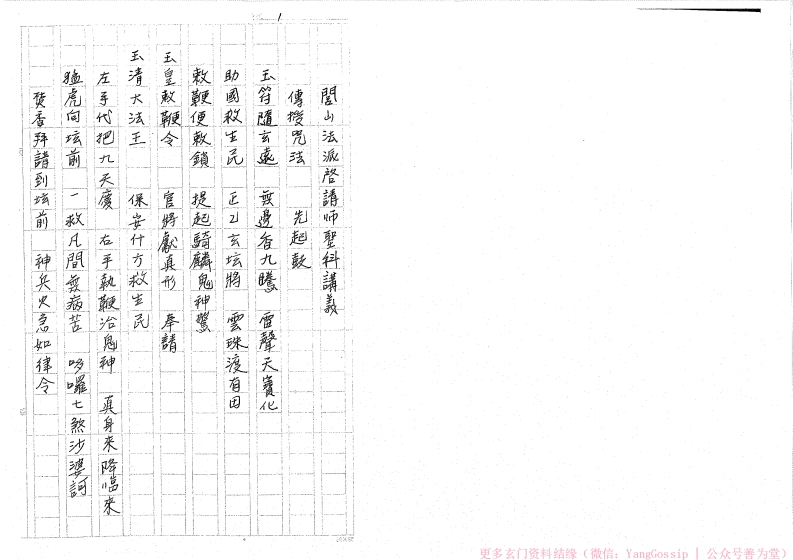 1
閭山法派啓請师聖科講義
傳授咒法 先起鼓
玉符隨玄遠 無邊香九騰 雷聲天寶化
助國救生民 正乙玄坛將 雲珠渡有田
敕鞭便敕鎖 提起騎麟鬼神驚
玉皇敕鞭令 官將獻真形 奉請
玉清大法王 保安什方救生民
左手代把九天慶 右手執鞭治鬼神 真身來降臨來
猛虎向坛前 一救凡間無病苦 哆囉七煞沙婆訶
焚香拜請到坛前 神兵火急如律令
更多玄门资料结缘（微信：YangGossip | 公众号善为堂）